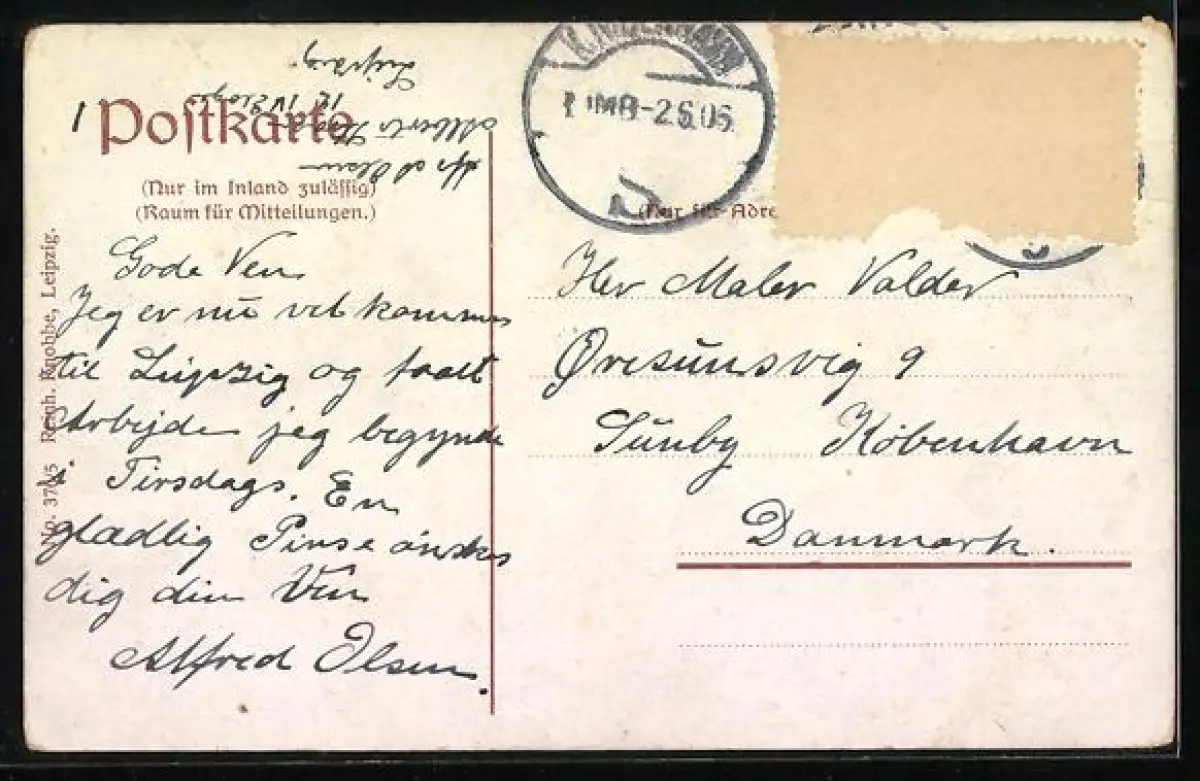 1 Postkarte
(Nur im Inland zulässig)
(Raum für Mitteilungen.)
Gode Ven
Jeg er nu vel kommen
til Leipzig og faaet
Arbejde jeg begynde
i Tirsdags. En
glædlig Pinse ønskes
dig din Ven
Alfred Olsen.
A Olsen
Alberts
12 IV
Leipzig.
Reinh. Knobbe, Leipzig.
-2.6.06
(Nur für Adre
Her Maler Valder
Øresunsvig 9
Sunby København
Danmark.